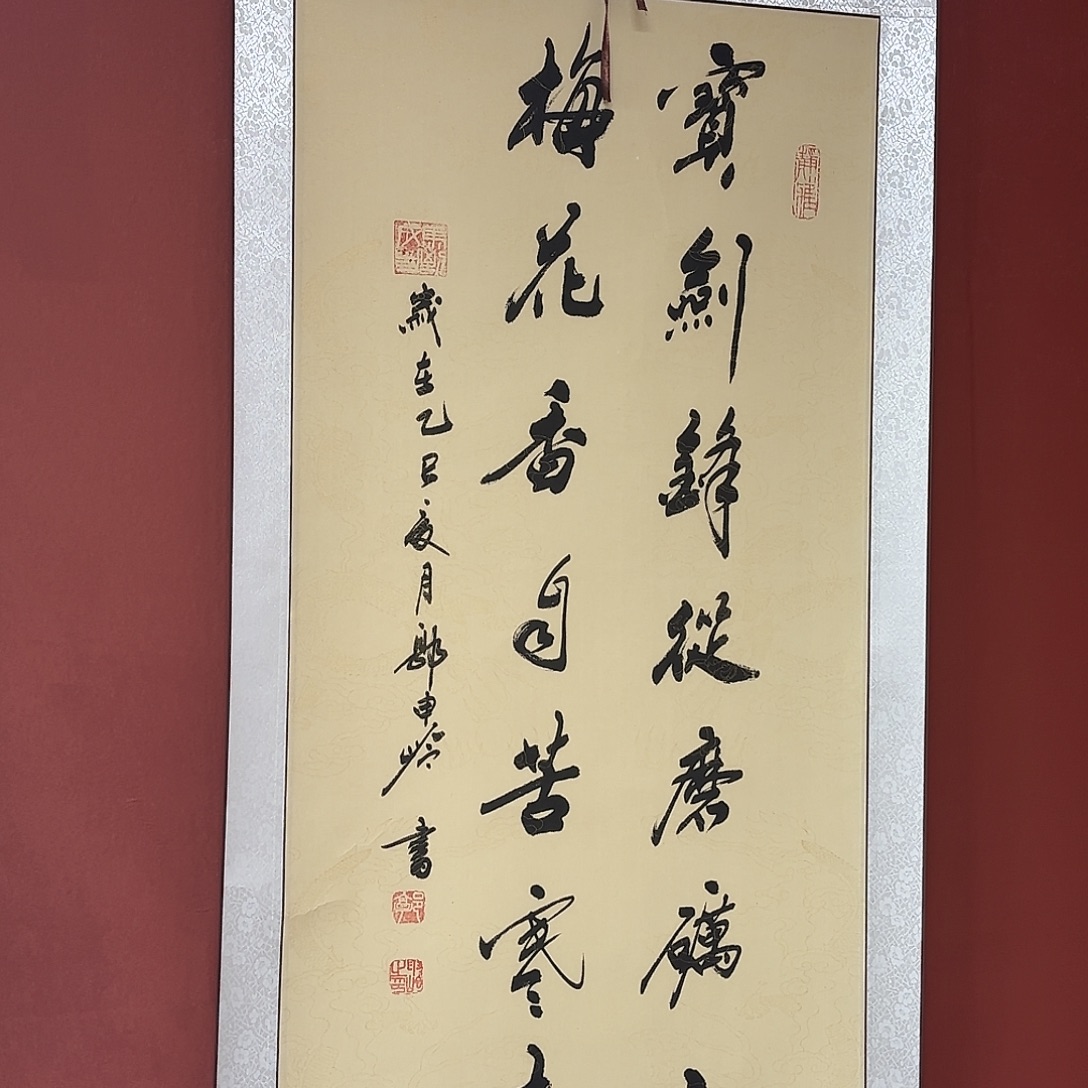 寶劍鋒從磨礪
梅花香自苦寒
歲在乙巳夏月郎申嶺書